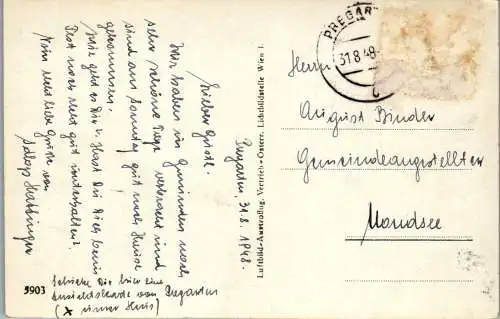 PREGAR
31.8.48
Pregarten, 31.8.1948.
Lieber Gustl.
Wir haben in Gmunden noch
sehr schöne Tage verbracht und
sind am Sonntag gut nach Hause
gekommen.
Wie geht es Dir? Hast Du Dich beim
Fest noch recht gut unterhalten?
Nun recht liebe Grüße von
5903
Schicke Dir hier eine
Ansichtskarte von Pregarten
(x unser Haus)
Luftbild-Ausstellg. Vertrieb-Österr. Lichtbildstelle Wien 1.
Herrn
August Binder
Gemeindeangestellter
Mondsee